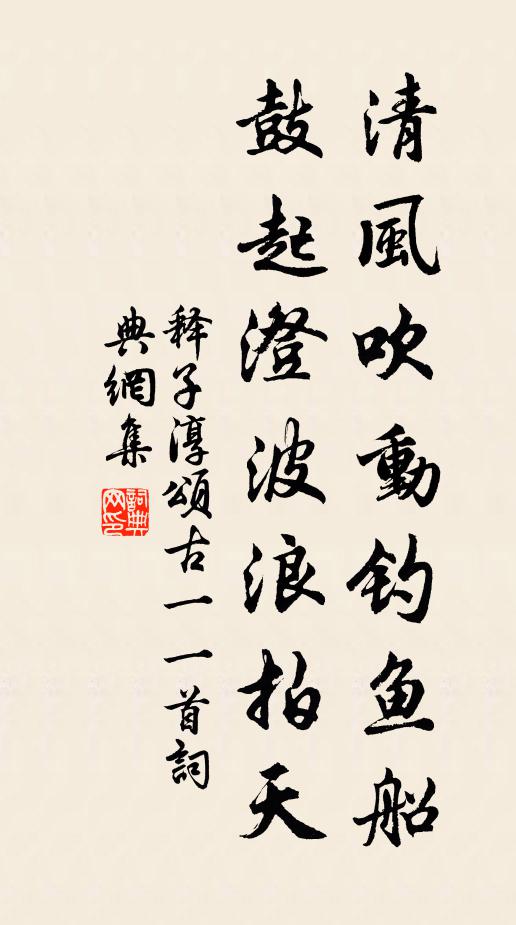 清風吹動钓鱼船
鼓起澄波浪拍天
释子淳頌古一一首詞
典網集
詞典网印